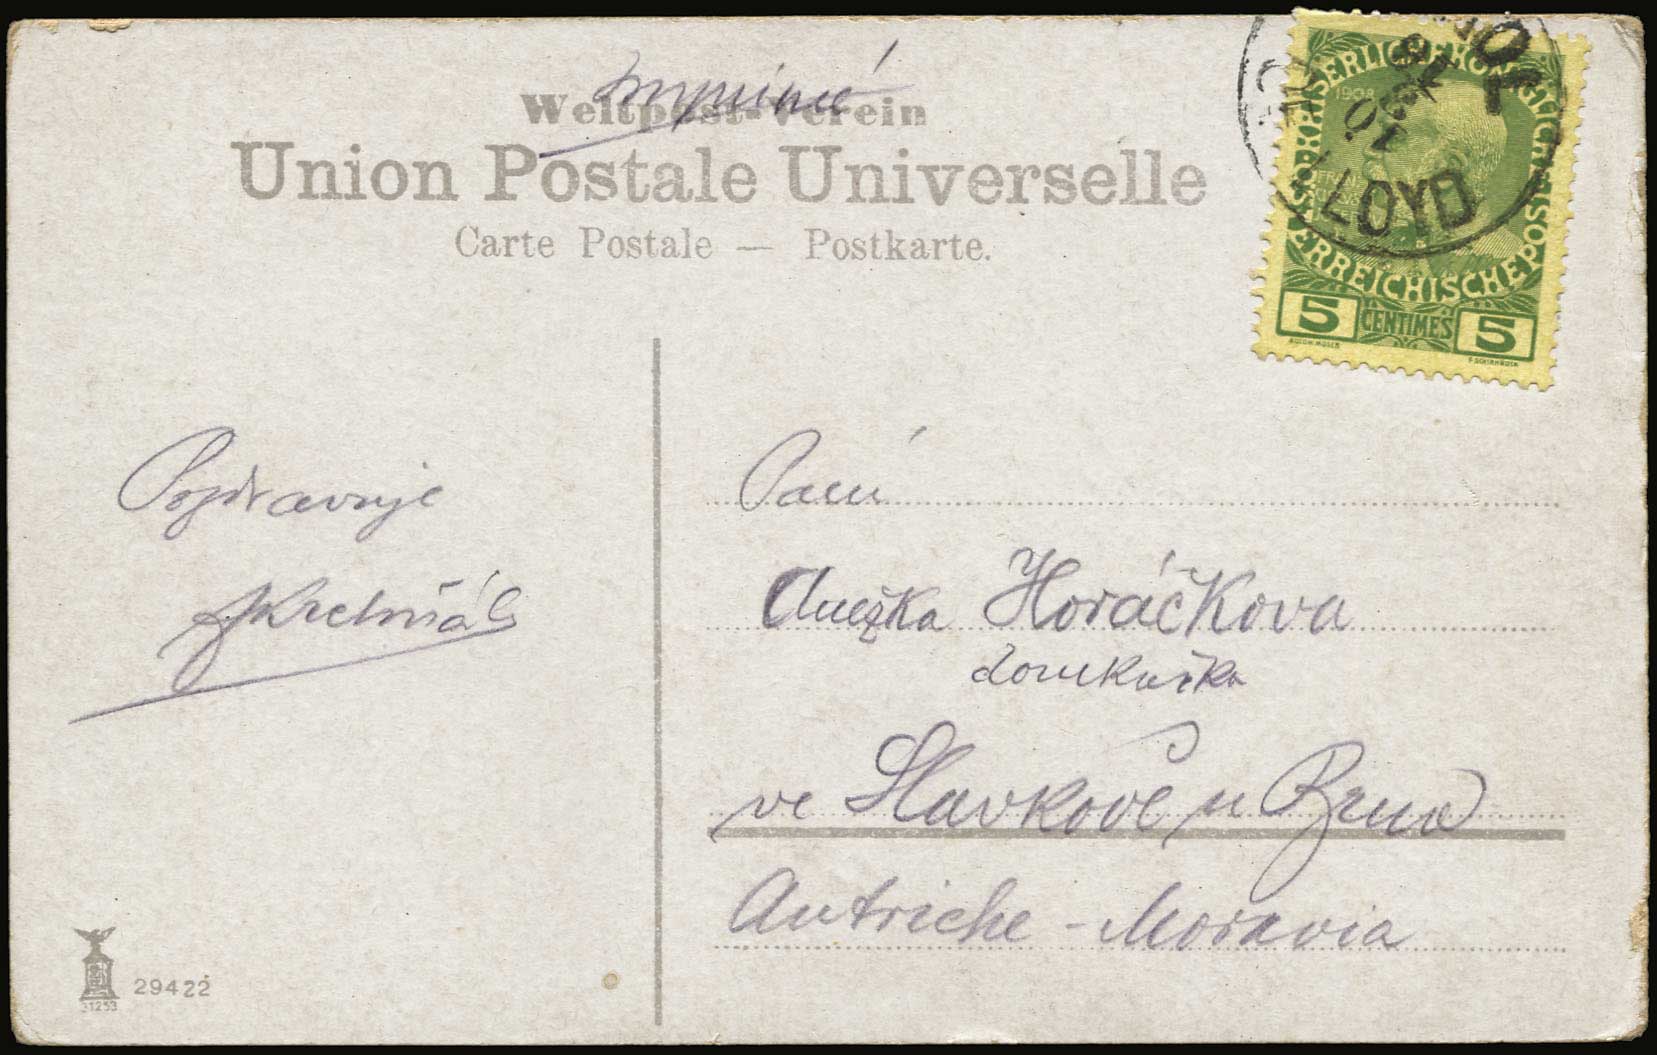 imprimé
Weltpost-Verein
Union Postale Universelle
Carte Postale — Postkarte.
LOYD
1908
KAISERLICHE KÖNIGLICHE ÖSTERREICHISCHE POST
5 CENTIMES 5
Pozdravuje
Paní
Anežka Horáčkova
ve Slavkově u Brna
Autriche - Moravia
29422
31253